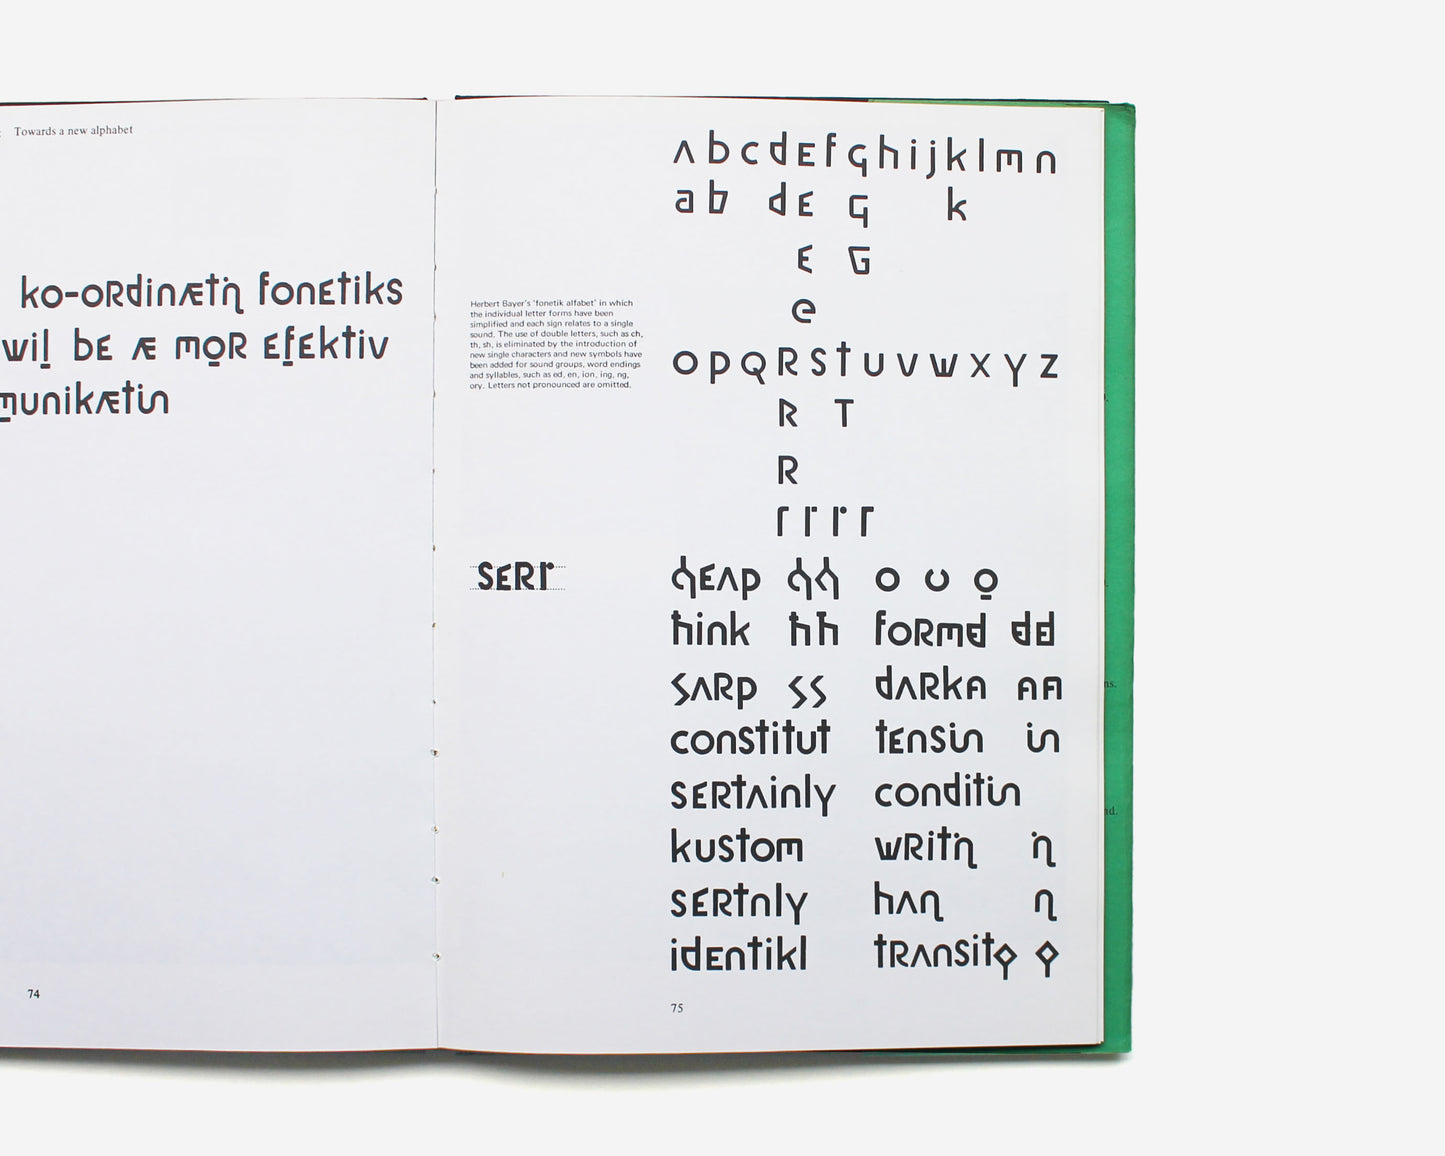 Towards a new alphabet
ko-oRdinætiŋ fonEtiks
wil bE æ moR EfEktiv
munikætin
74
ʌbcdEfghijklmn
ab dE G k
E G
e
opqRstuvwxyz
R T
R
rrrr
Herbert Bayer's 'fonetik alfabet' in which
the individual letter forms have been
simplified and each sign relates to a single
sound. The use of double letters, such as ch,
th, sh, is eliminated by the introduction of
new single characters and new symbols have
been added for sound groups, word endings
and syllables, such as ed, en, ion, ing, ng,
ory. Letters not pronounced are omitted.
sERr
o o o
ħink ħħ foRmd dd
sʌRp ss dʌRkA AA
constitut tEnsin in
sERtʌinly conditin
kustom wRitiŋ iŋ
sERtnly hʌŋ ŋ
idEntikl
75
ns.
nd.